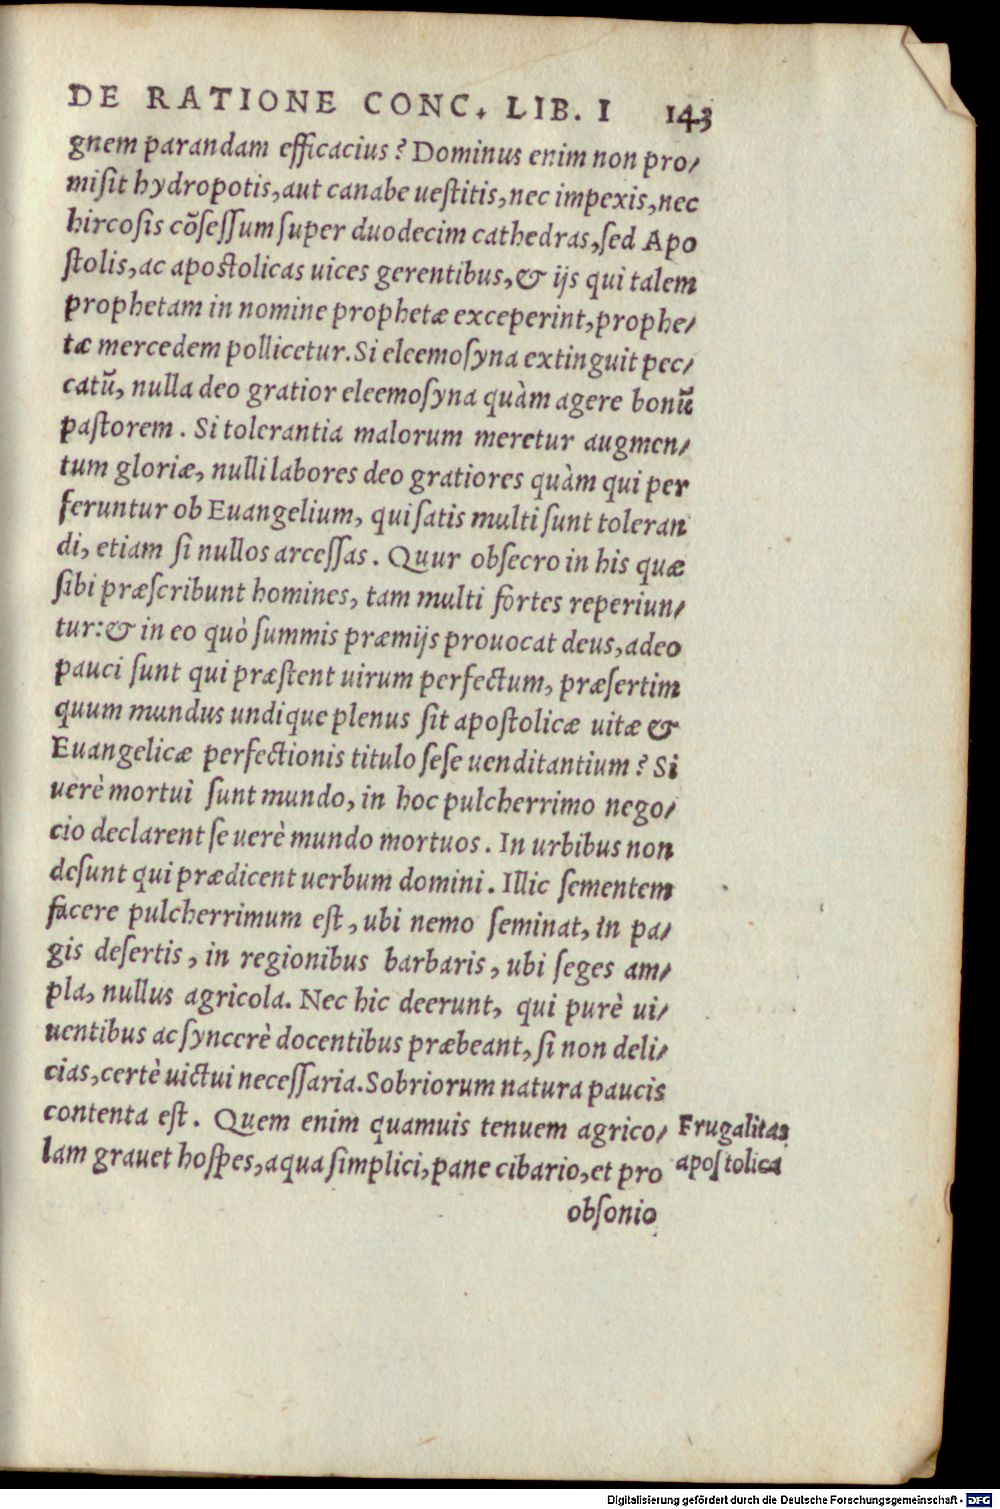 DE RATIONE CONC. LIB. I 143
gnem parandam efficacius? Dominus enim non pro/
misit hydropotis, aut canabe uestitis, nec impexis, nec
hircosis cõsessum super duodecim cathedras, sed Apo
stolis, ac apostolicas uices gerentibus, & ijs qui talem
prophetam in nomine prophetæ exceperint, prophe/
tæ mercedem pollicetur. Si eleemosyna extinguit pec/
catũ, nulla deo gratior eleemosyna quàm agere bonũ
pastorem. Si tolerantia malorum meretur augmen/
tum gloriæ, nulli labores deo gratiores quàm qui per
feruntur ob Euangelium, qui satis multi sunt toleran
di, etiam si nullos arcessas. Quur obsecro in his quæ
sibi præscribunt homines, tam multi fortes reperiun/
tur: & in eo quò summis præmijs prouocat deus, adeo
pauci sunt qui præstent uirum perfectum, præsertim
quum mundus undique plenus sit apostolicæ uitæ &
Euangelicæ perfectionis titulo sese uenditantium? Si
uerè mortui sunt mundo, in hoc pulcherrimo nego/
cio declarent se uerè mundo mortuos. In urbibus non
desunt qui prædicent uerbum domini. Illic sementem
facere pulcherrimum est, ubi nemo seminat, in pa/
gis desertis, in regionibus barbaris, ubi seges am/
pla, nullus agricola. Nec hic deerunt, qui purè ui/
uentibus ac syncerè docentibus præbeant, si non deli/
cias, certè uictui necessaria. Sobriorum natura paucis
contenta est. Quem enim quamuis tenuem agrico/
lam grauet hospes, aqua simplici, pane cibario, et pro
obsonio
Frugalitas
apostolica
Digitalisierung gefördert durch die Deutsche Forschungsgemeinschaft - DFG